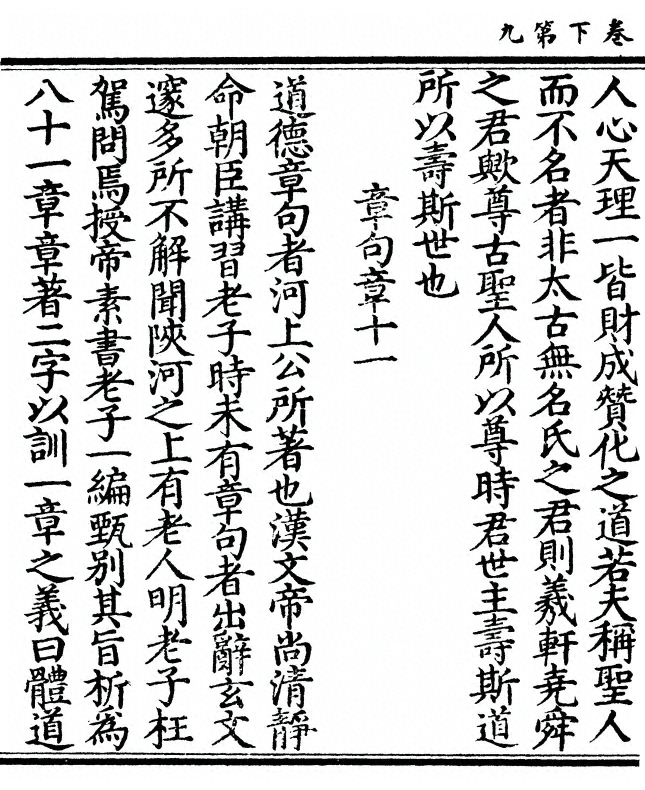 卷下第九
人心天理一皆財成贊化之道若夫稱聖人
而不名者非太古無名氏之君則羲軒堯舜
之君歟尊古聖人所以尊時君世主壽斯道
所以壽斯世也
章句章十一
道德章句者河上公所著也漢文帝尚清靜
命朝臣講習老子時未有章句者出辭玄文
邃多所不解聞陝河之上有老人明老子枉
駕問焉授帝素書老子一編甄别其旨析為
八十一章章著二字以訓一章之義曰體道